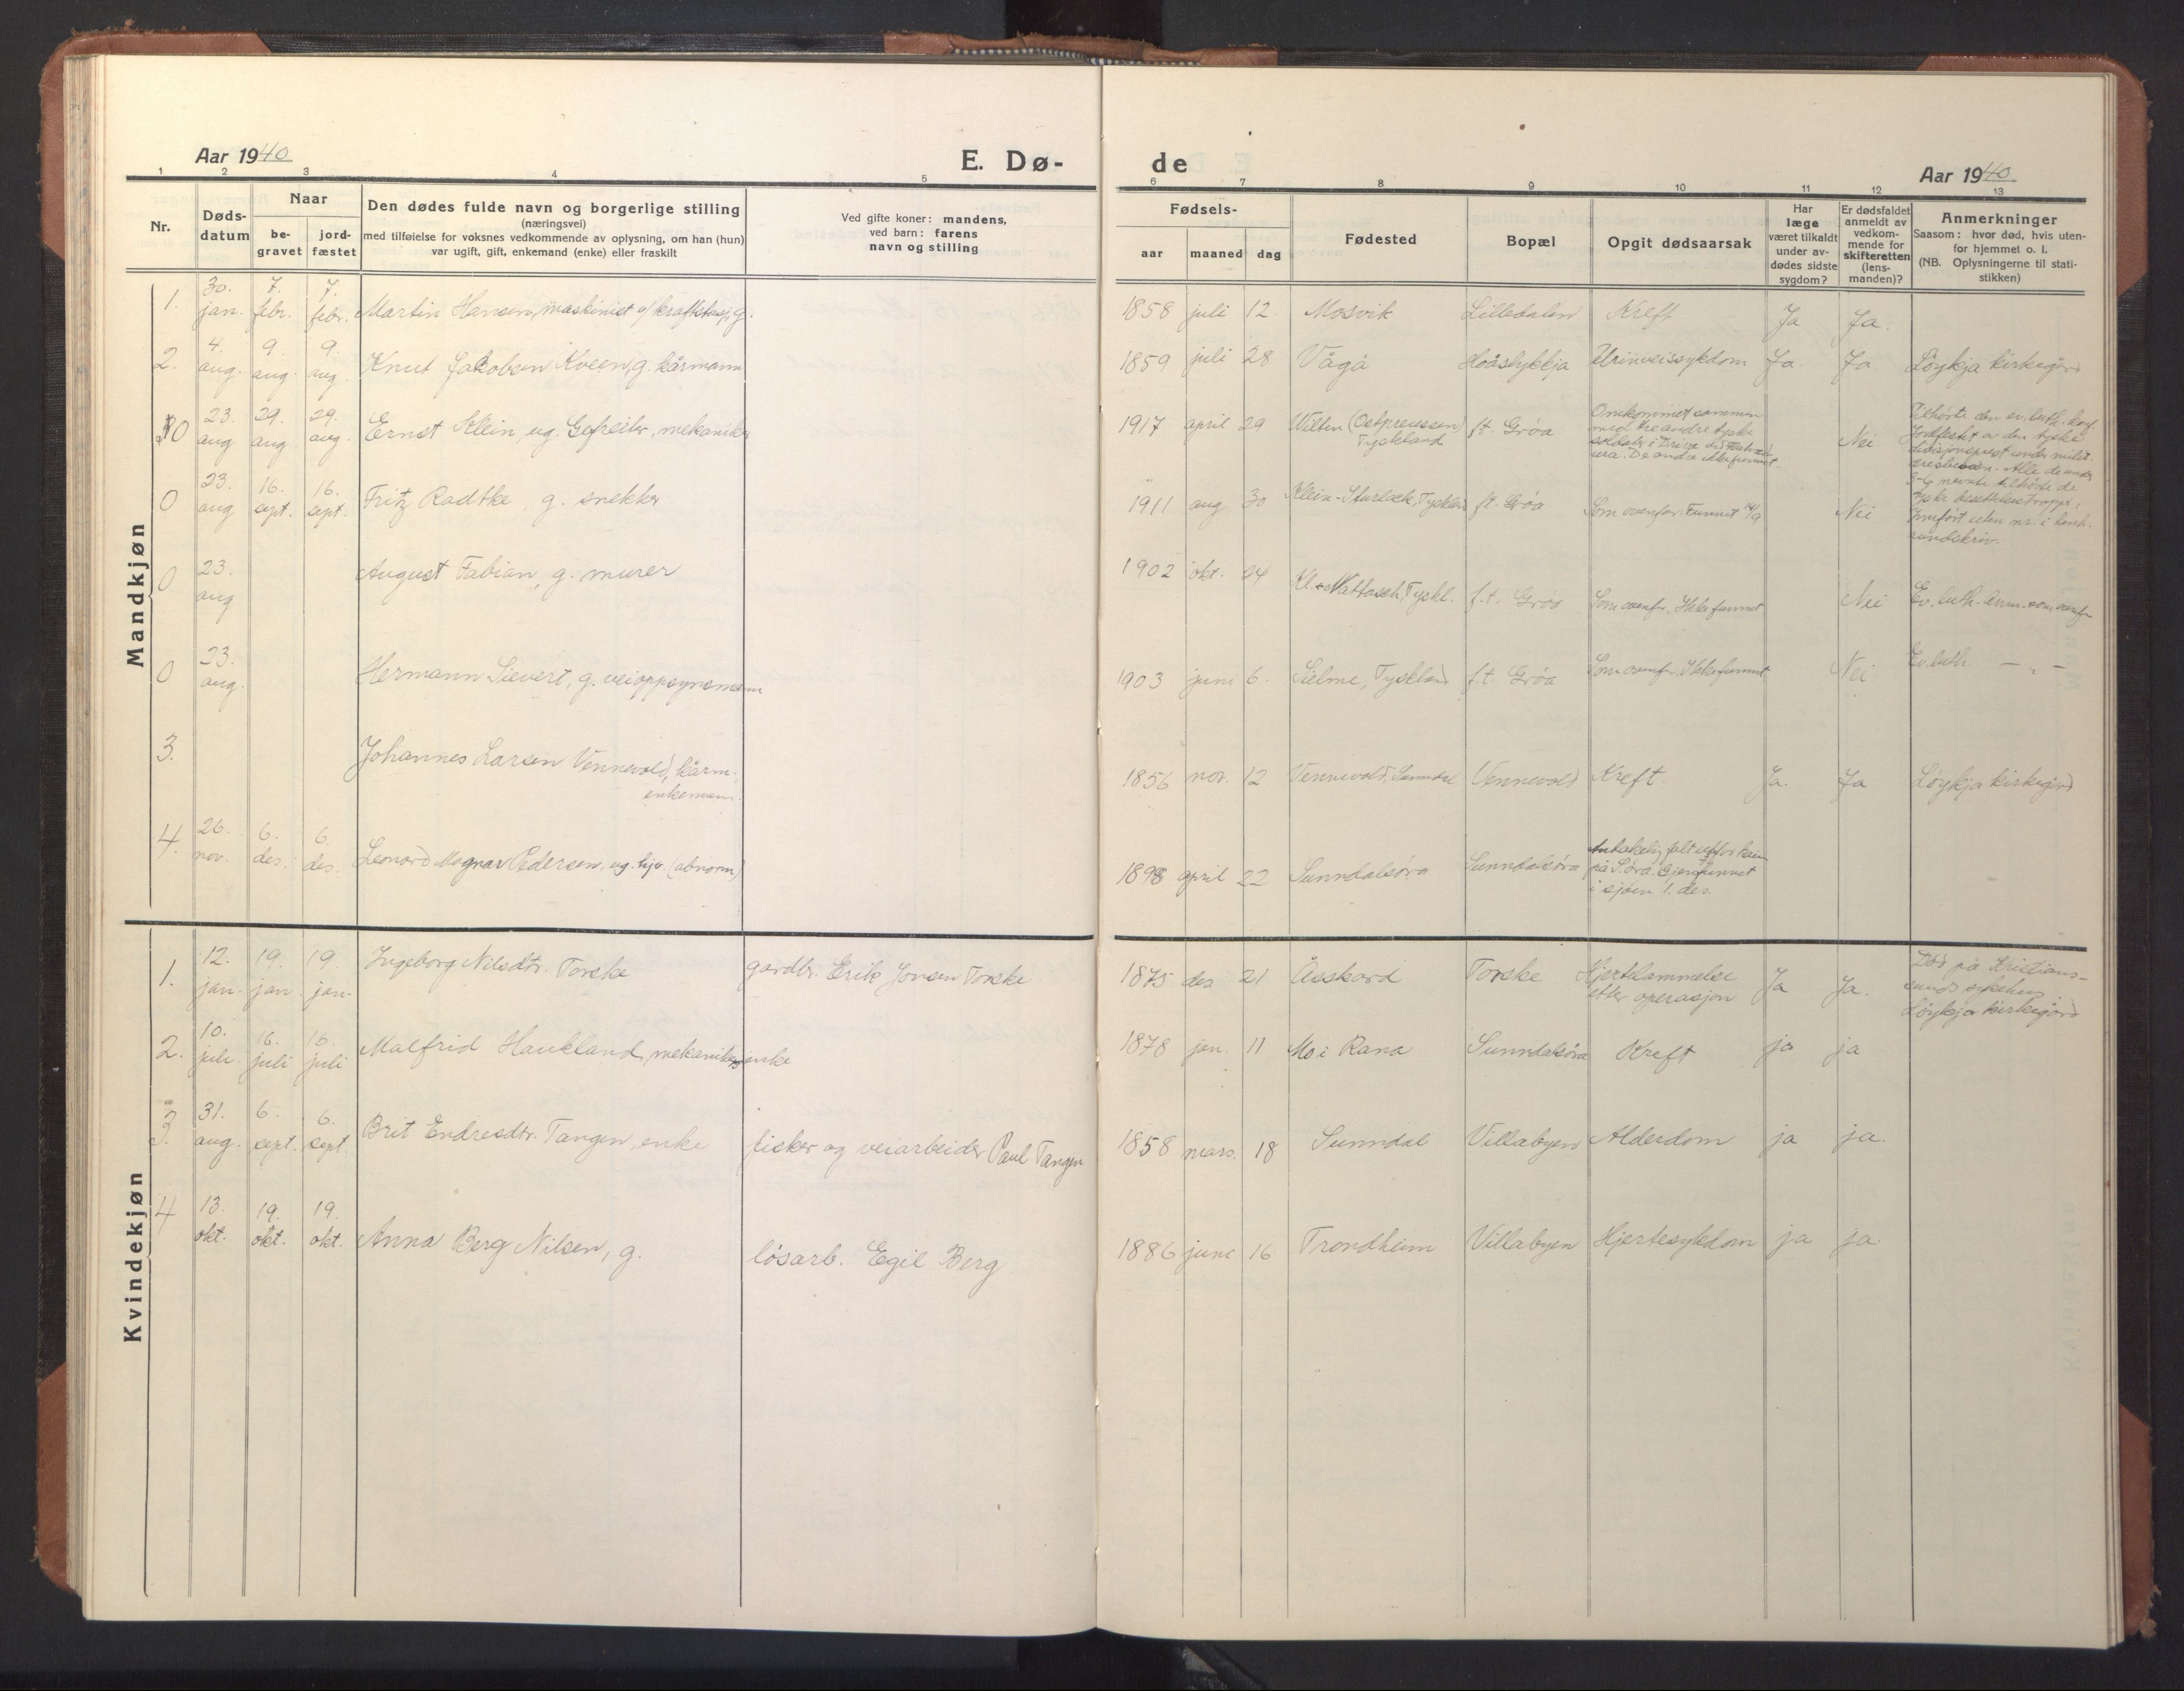 Aar 1940
E. Dø-
de
Aar 1940
1 2 3 4 5 6 7 8 9 10 11 12 13
Nr.
Døds-
datum
Naar
be-
gravet
jord-
fæstet
Den dødes fulde navn og borgerlige stilling
(næringsvei)
med tilføielse for voksnes vedkommende av oplysning, om han (hun)
var ugift, gift, enkemand (enke) eller fraskilt
Ved gifte koner: mandens,
ved barn: farens
navn og stilling
Fødsels-
aar maaned dag
Fødested
Bopæl
Opgit dødsaarsak
Har
læge
været tilkaldt
under av-
dødes sidste
sygdom?
Er dødsfaldet
anmeldt av
vedkom-
mende for
skifteretten
(lens-
manden)?
Anmerkninger
Saasom: hvor død, hvis uten-
for hjemmet o. l.
(NB. Oplysningerne til stati-
stikken)
Mandkjøn
1. 30. jan. 7. febr. 7. febr. Martin Hansen, maskinist v/ kraftstasj., g. 1858 juli 12. Mosvik Lilledalen Kreft Ja Ja.
2. 4. aug. 9. aug. 9. aug. Knut Jakobsen Kveen, g. kårmann 1859 juli 28 Vågå Hoåslykkja Urinveissykdom Ja Ja. Løykja kirkegård
0 23. aug 29. aug. 29. aug. Ernst Klein, ug. Gefreiter, mekaniker 1917 april 29 Wilten (Ostpreussen) Tyskland f.t. Grøa
Omkommet sammen
med tre andre tyske
soldater i Driva ved
De andre ikke funnet.
Nei
Tilhørte den ev. luth. konf.
Jordfestet av den tyske
divisjonsprest under milit.
æresbevisn. Alle de under
nevnte tilhørte de
tyske besettelsestropper,
Innført uten nr. i henh.
rundskriv.
0 23. aug 16. sept. 16. sept. Fritz Radtke, g. snekker 1911 aug 30 Klein-Sturlack, Tyskland f.t. Grøa Som ovenfor. Funnet 14/9 Nei
0 23. aug August Fabian, g. murer 1902 okt. 24 Kl. Nattasch, Tyskl. f.t. Grøa Som ovenfor. Ikke funnet Nei Ev. luth. Anm. som ovenfor
0 23. aug. Hermann Sievert, g. veioppsynsmann 1903 juni 6. Sielme, Tyskland f.t. Grøa Som ovenfor. Ikke funnet Nei Ev. luth. — „ —
3. Johannes Larsen Vennevold, kårm., enkemann. 1856 nov. 12 Vennevold, Sunndal Vennevold Kreft Ja. Ja Løykja kirkegård
4. 26. nov. 6. des. 6. des. Leonard Magnar Pedersen, ug. hjv. (abnorm) 1898 april 22 Sunndalsøra Sunndalsøra
Antakelig falt utfor kaien
på S.øra. Gjenfunnet
i sjøen 1. des.
Kvindekjøn
1. 12. jan. 19. jan. 19. jan. Ingeborg Nilsdtr. Torske gardbr. Erik Jonsen Torske 1875 des 21 Åsskard Torske Hjertelammelse etter operasjon Ja Ja.
Død på Kristians-
sunds sykehus
Løykja kirkegård
2. 10. juli. 16. juli 16. juli Malfrid Haukland, mekanikers enke 1878 jan. 11 Mo i Rana Sunndalsøra Kreft ja ja
3. 31. aug. 6. sept. 6. sept. Brit Endresdtr. Tangen, enke fisker og veiarbeider Paul Tangen 1858 mars. 18 Sunndal Villabyen Alderdom ja ja.
4 13. okt. 19. okt. 19. okt. Anna Berg Nilsen, g. løsarb. Egil Berg 1886 juni 16 Trondheim Villabyen Hjertesykdom ja ja.